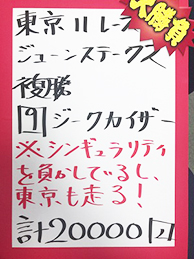 大勝負
東京11レース
ジューンステークス
複勝
9 ジークカイザー
※シンギュラリティ
を負かしているし、
東京も走る!
計20000円